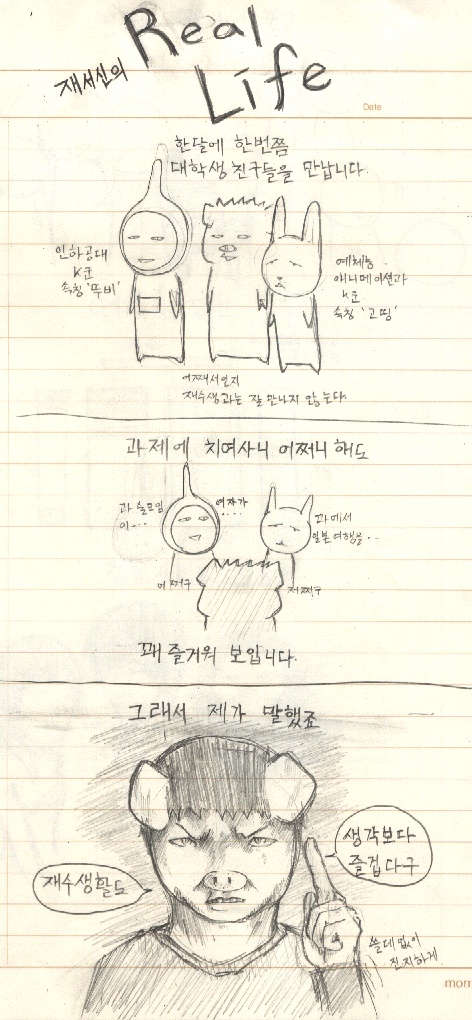 Real
Life
재서신의
Date
한달에 한번쯤
대학생 친구들을 만납니다.
인하공대
K군
속칭 '뚜비'
예체능
애니메이션과
K군
속칭 '고띵'
어째서인지
재수생과는 잘 만나지 않는다
과제에 치여사니 어쩌니 해도
과 술모임
이...
여자가
....
과에서
일본여행을...
어쩌구
저쩌구
꽤 즐거워 보입니다.
그래서 제가 말했죠
생각보다
즐겁다구
재수생활도
쓸데없이
진지하게
morn